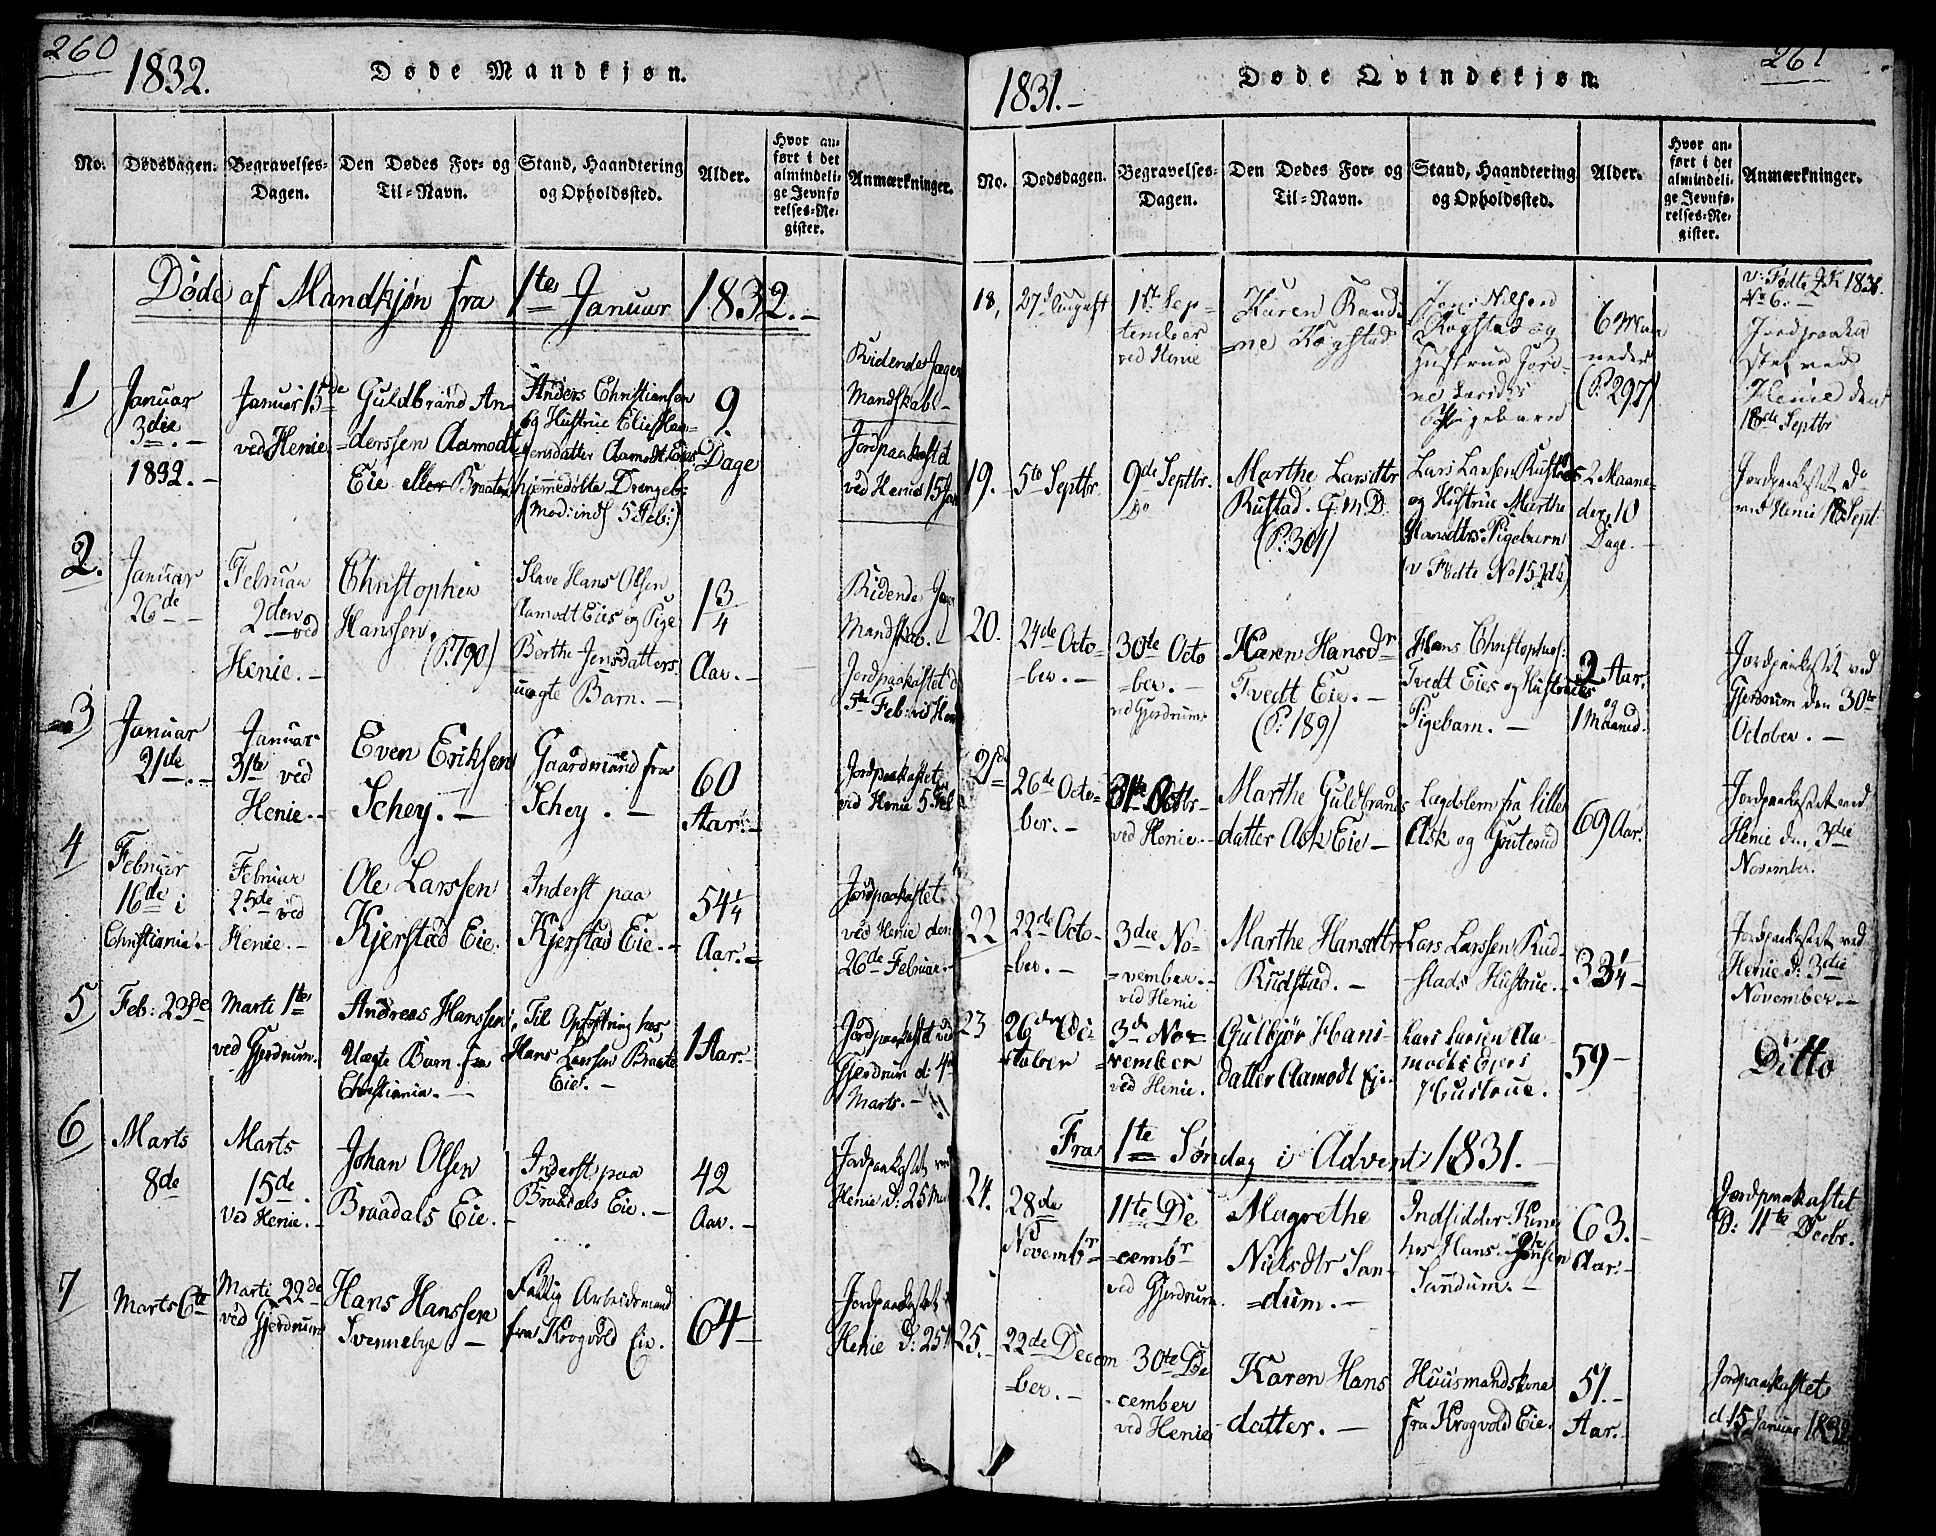 260
1832.
Døde Mandkjøn.
No.
Dødsdagen.
Begravelses-
Dagen.
Den Dødes For- og
Til-Navn.
Stand, Haandtering
og Opholdssted.
Alder.
Hvor an-
ført i det
almindeli-
ge Jevnfø-
relses-Re-
gister.
Anmærkninger.
Døde af Mandkjøn fra 1te Januar 1832.-
1
Januar
3die.-
1832.-
Januar 15de
ved Henie.
Guldbrand An-
derssen Aamodt
Eie eller Braaten
Anders Christiansen
og Hustrue Elie Han-
sensdatter Aamodt Eies
hjemmedøbte Drengeb:
(Mod: inds 5 Feb:)
9
Dage
Ridende Jæger
Mandskab-
Jordpaakastd
ved Henie 15 Jan
2.
Januar
26de-
Februar
2den ved
Henie.-
Christopher
Hanssen.
(P. 190)
Slave Hans Olsen
Aamodt Eies og Pige
Berthe Jensdatters
uægte Barn.-
1 3/4
Aar.-
Ridende Jæger
Mandskab.
Jordpaakastet d
5te Feb: ved Henie
3
Januar
21de.-
Januar
31te ved
Henie.-
Even Eriksen
Schey.-
Gaardmand fra
Schey.-
60
Aar.-
Jordpaakastet
ved Henie 5 Feb
4
Februar
16de i
Christiania.-
Februar
25de ved
Henie.-
Ole Larssen
Kjerstad Eie.
Inderst paa
Kjerstad Eie.-
54 1/4
Aar.-
Jordpaakastet
ved Henie den
26de Februar.-
5
Feb: 23de
Marti 1te
ved Gjerdrum.
Andreas Hanssen
Uægte Barn fra
Christiania.-
Til Opfostring hos
Hans Larssen Braate
Eie.-
1 Aar.-
Jordpaakastet ved
Gjerdrum d: 4de
Marts.-
6
Marts
8de
Marts
15de.
ved Henie.-
Johan Olsen
Braadals Eie.-
Inderst paa
Braadals Eie.-
42
Aar.-
Jordpaakastet ved
Henie d: 25 Mar
7
Marts 6te
Marti 22de
ved Gjerdrum
Hans Hanssen
Svennebye-
Fattig Arbeidsmand
fra Krogvold Eie.
64-
Jordpaakastet
Henie d: 25
261
1831.-
Døde Qvindekjøn.
No.
Dødsdagen.
Begravelses-
Dagen.
Den Dødes For- og
Til-Navn.
Stand, Haandtering
og Opholdssted.
Alder.
Hvor an-
ført i det
almindeli-
ge Jevnfø-
relses-Re-
gister.
Anmærkninger.
18,
27d August
1ste Sep-
tember
ved Henie
Karen Rand-
ine Kogstad
Nilsens
Kogstad og
Hustrue
Pigebarn
6 Maa
neder
(P. 297)
v: Fødte 1831.
No 6.-
Jordpaaka
stet ved
Henie den
18de Septbr
19.
5te Septbr.
9de Septbr.
Do
Marthe Larsdtr
Rustad. G.m.D.
(P. 301)
Lars Larsen Rustad
og Hustrue Marthe
Hansdtrs Pigebarn
(v Fødte No 15)
2 Maane-
der, 10
Dage.-
Jordpaakastet do
ved Henie 18 Sept.
20.
24de Octo
ber.-
30te Octo
ber.-
ved Gjerdrum.
Karen Hansdr
Tvedt Eie.-
(P. 189)
Hans Christophers:
Tvedt Eies og Hustrues
Pigebarn.-
2 Aar.
og
1 Maaned.
Jordpaakastet ved
Gjerdrum den 30te
October.-
21de
26de Octo-
ber.-
31te Octbr-
ved Henie.-
Marthe Guldbrands
datter Ask Eie-
Lægdslem fra lille
Ask og Grutesud
69 Aar.
Jordpaakastet ved
Henie den 3die
November.
22
22de Octo-
ber.-
3die No-
vember.-
ved Henie
Marthe Hansdtr
Rudstad.-
Lars Larssen Rud-
stads Hustrue.-
33 1/4-
Jordpaakastet ved
Henie d: 3die
November.-
23
26de Oc-
tober
3de No-
vember
ved Henie.
Gulbjør Hans-
datter Aamodt Eie
Lars Larsen Aa-
modts Eyes
Hustrue.
59-
Ditto
Fra 1te Søndag i Advent 1831.-
24.
28de
Novembr
11te De
cembr
ved Gjerdrum.
Magrethe
Nielsdtr San-
dum.-
Indsidder-Kone
hos Hans Jensen
Sandum.-
63.-
Aar.-
Jordpaakastet
D: 11te Decbr.
25.
22de Decem
ber.-
30te De
cember
ved Henie
Karen Hans
datter.-
Huusmandskone
fra Krogvold Eie.
51.-
Aar.-
Jordpaakastet
d. 15 Januar 1832